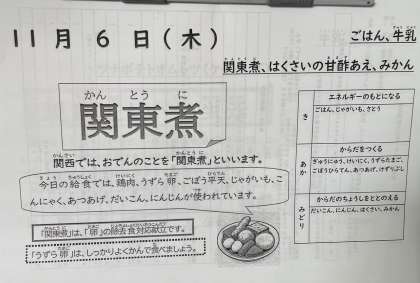 11月6日(木)
ごはん、牛乳
関東煮、はくさいの甘酢あえ、みかん
関東煮
関西では、おでんのことを「関東煮」といいます。
今日の給食では、鶏肉、うずら卵、ごぼう平天、じゃがいも、こ
んにゃく、あつあげ、だいこん、にんじんが使われています。
『関東煮』は、「卵」の除去食対応献立です。
「うずら卵」は、しっかりよくかんで食べましょう。
エネルギーのもとになる
き
ごはん、じゃがいも、さとう
からだをつくる
あか
ぎゅうにゅう、けいにく、うずらたまご、
ごぼうひらてん、あつあげ、けずりぶし
からだのちょうしをととのえる
みどり
だいこん、にんじん、はくさい、みかん